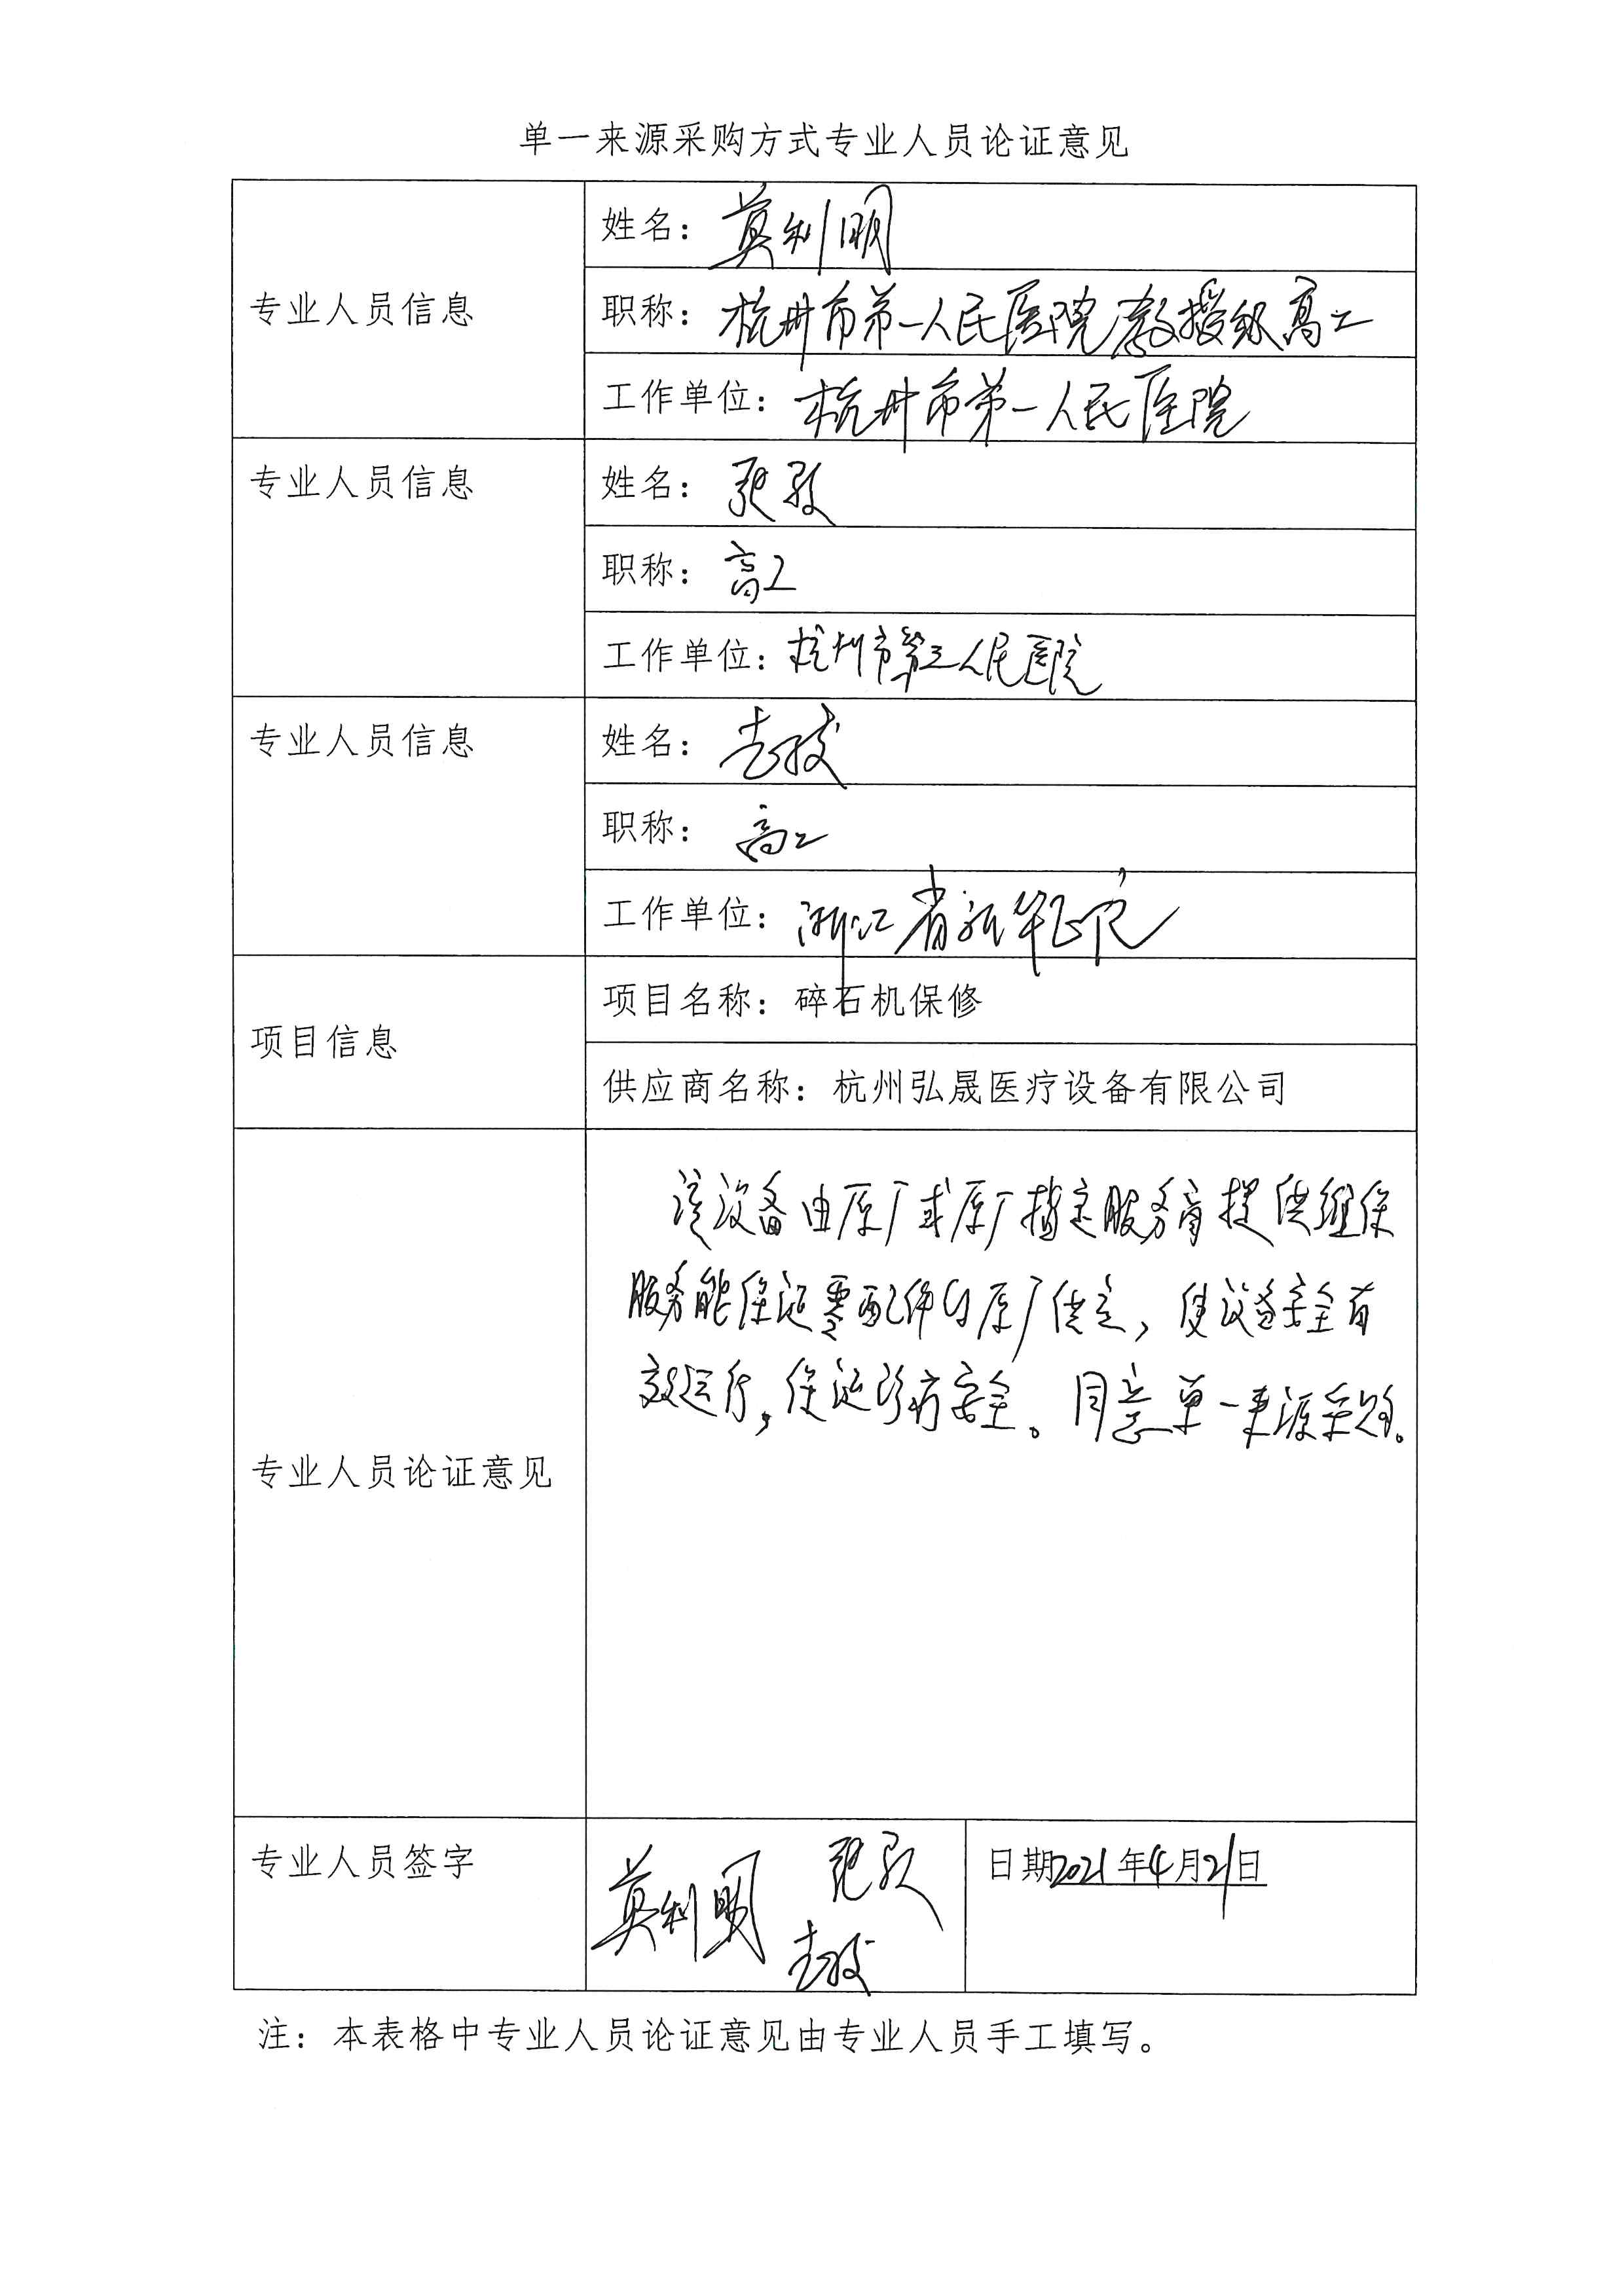 单一来源采购方式专业人员论证意见
专业人员信息
姓名：莫利明
职称：杭州市第一人民医院教授级高工
工作单位：杭州市第一人民医院
专业人员信息
姓名：
职称：高工
工作单位：杭州市第三人民医院
专业人员信息
姓名：
职称：高工
工作单位：浙江省新华医院
项目信息
项目名称：碎石机保修
供应商名称：杭州弘晟医疗设备有限公司
专业人员论证意见
该设备由原厂或原厂指定服务商提供维保
服务能保证零配件的原厂供应，使设备安全有
效运行，保证诊疗安全。同意单一来源采购。
专业人员签字
莫利明
日期2021年4月21日
注：本表格中专业人员论证意见由专业人员手工填写。